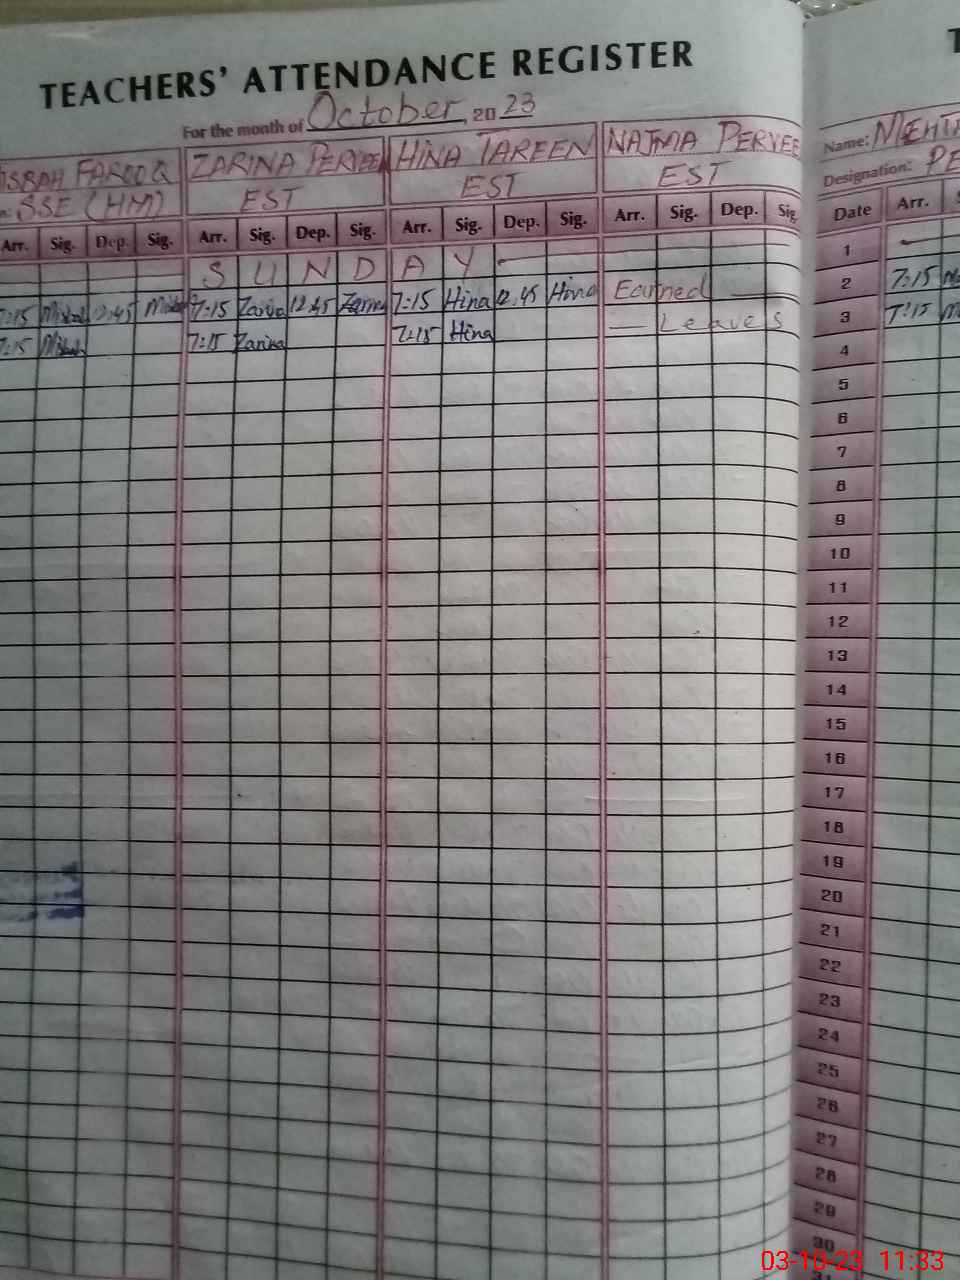 TEACHERS' ATTENDANCE REGISTER
For the month of October, 2023
ISBAH FAROOQ ZARINA PERVEEN HINA TAREEN NAJMA PERVEE
SSE (HM) EST EST EST
Arr. Sig. Dep. Sig. Arr. Sig. Dep. Sig. Arr. Sig. Dep. Sig. Arr. Sig. Dep. Sig
SUNDAY
7:15 Misbah 12:45 Misbah 7:15 Zarina 12:45 Zarina 7:15 Hina 12:45 Hina Earned
7:15 Misbah 7:15 Zarina 7:15 Hina Leaves
T
Name: MEHTA
Designation: PE
Date Arr. S
1
2 7:15
3 7:15
4
5
6
7
8
9
10
11
12
13
14
15
16
17
18
19
20
21
22
23
24
25
26
27
28
29
30
03-10-23 11:33